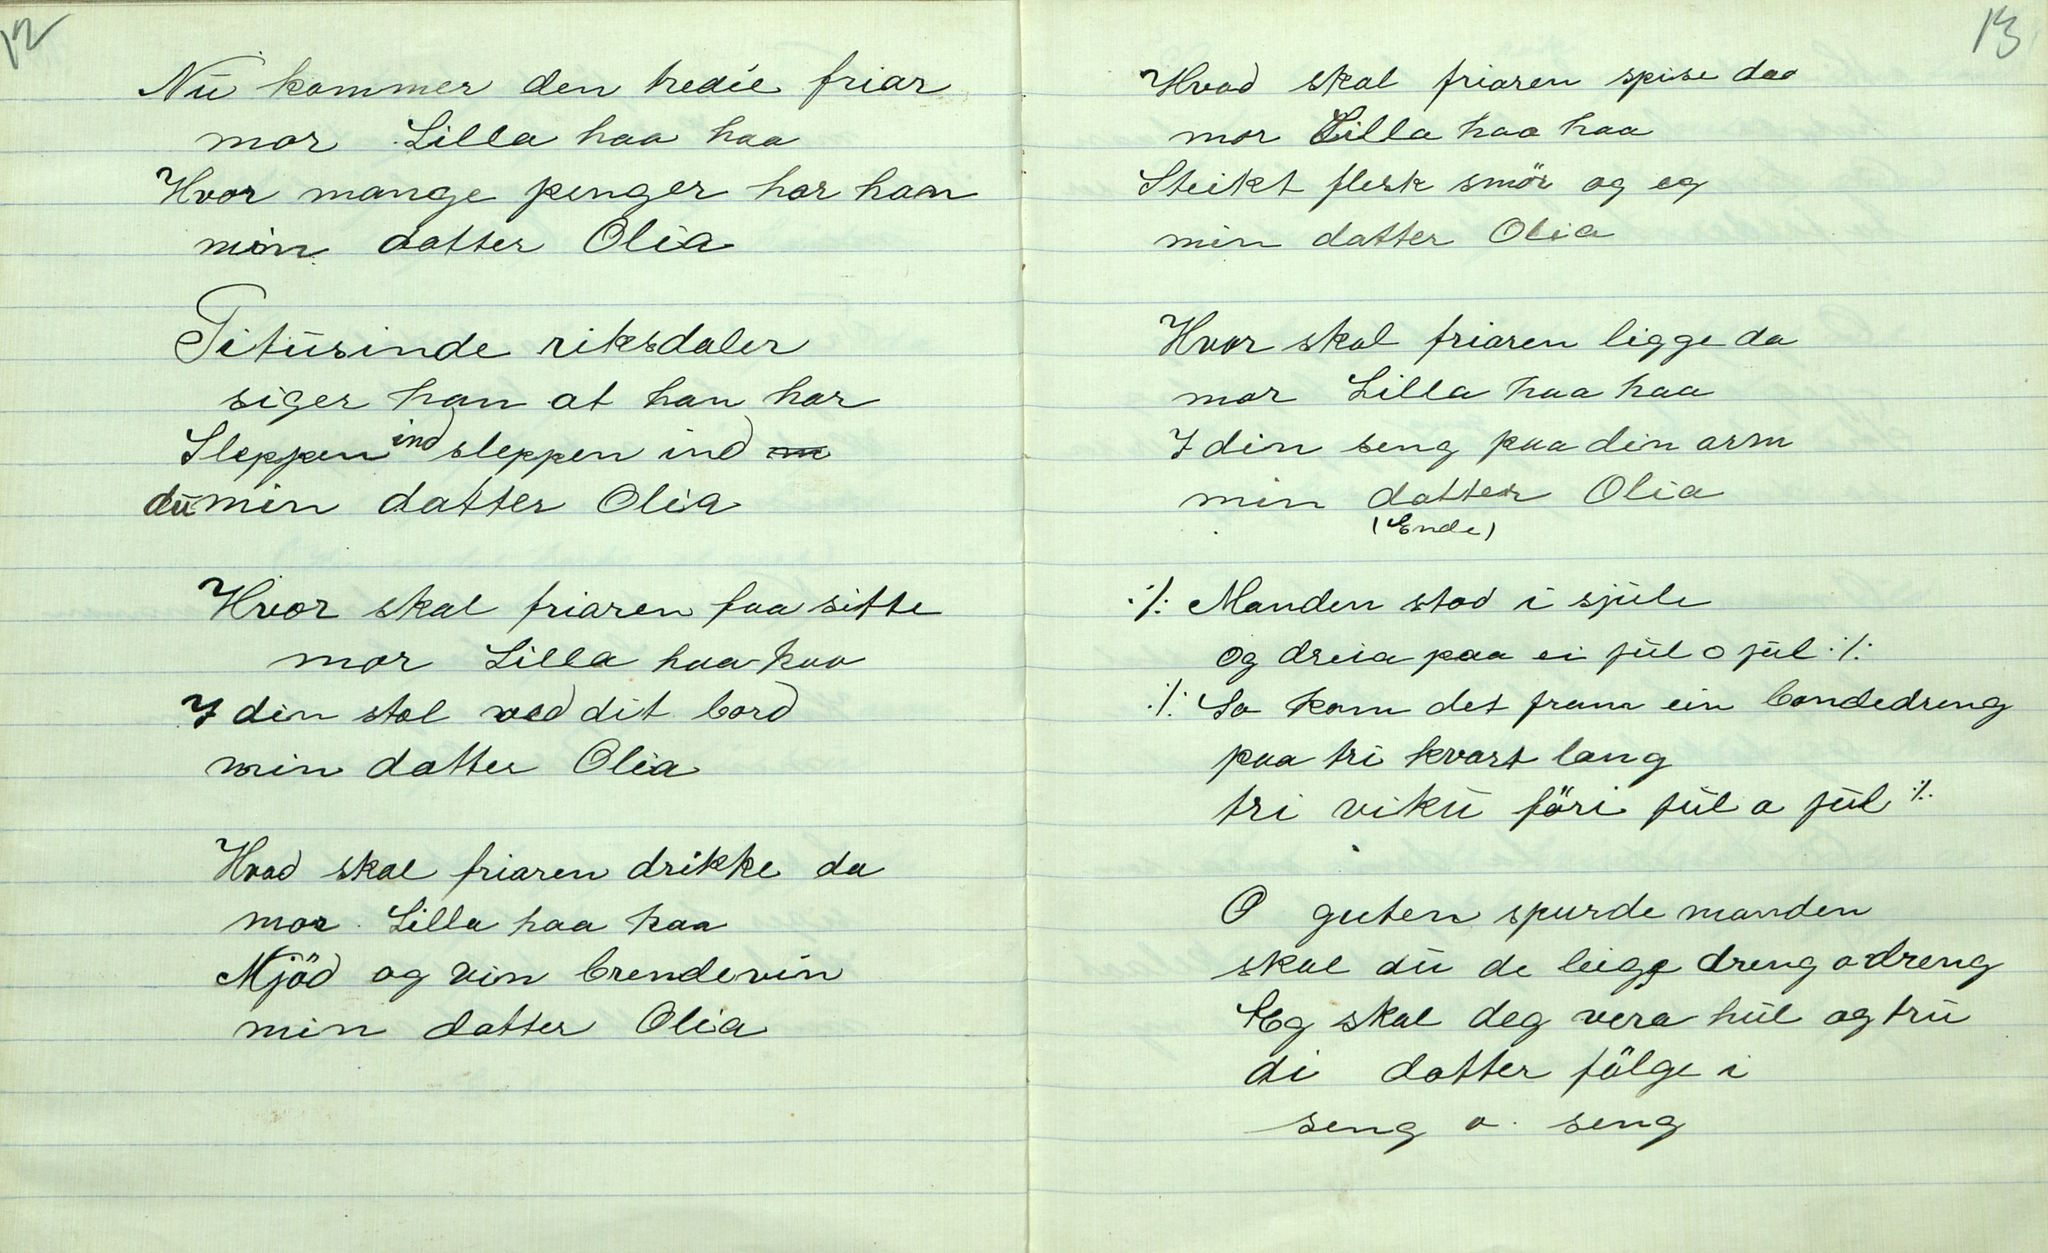 12
Nu kommer den tredie friar
mor Lilla haa haa
Hvor mange penger har han
min datter Olia
Titusinde riksdaler
siger han at han har
Sleppen ind sleppen ind
du min datter Olia
Hvor skal friaren faa sitte
mor Lilla haa haa
I din stol ved dit bord
min datter Olia
Hvad skal friaren drikke da
mor Lilla haa haa
Mjöd og vin brendevin
min datter Olia
13
Hvad skal friaren spise daa
mor Lilla haa haa
Steikt flesk smör og eg
min datter Olia
Hvor skal friaren ligge da
mor Lilla haa haa
I din seng paa din arm
min datter Olia
(Ende)
:/: Manden stod i sjule
og dreia paa ei jul o jul :/:
:/: So kom det fram ein bondedreng
paa tri kvart lang
tri viku föri jul a jul :/:
O guten spurde manden
skal du de leige dreng o dreng
Eg skal deg vera hul og tru
di datter fölge i
seng o seng